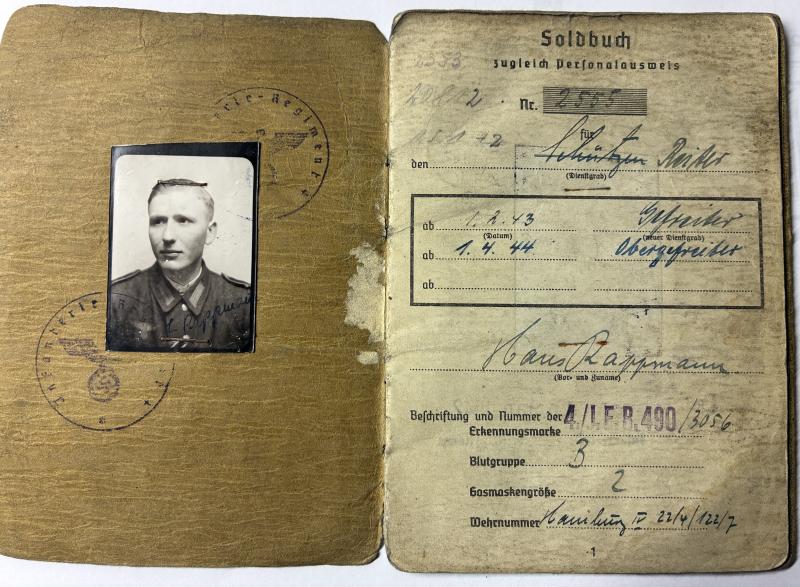 Infanterie-Regiment
H. Rappmann
Soldbuch
zugleich Personalausweis
Nr. 2555
für
den Schützen Reiter
(Dienstgrad)
ab 1.2.43 Gefreiter
(Datum) (neuer Dienstgrad)
ab 1.4.44 Obergefreiter
ab
Hans Rappmann
(Vor- und Zuname)
Beschriftung und Nummer der 4./I.E.B.490/3056
Erkennungsmarke
Blutgruppe B
Gasmaskengröße 2
Wehrnummer Hamburg IV 22/4/122/7
1